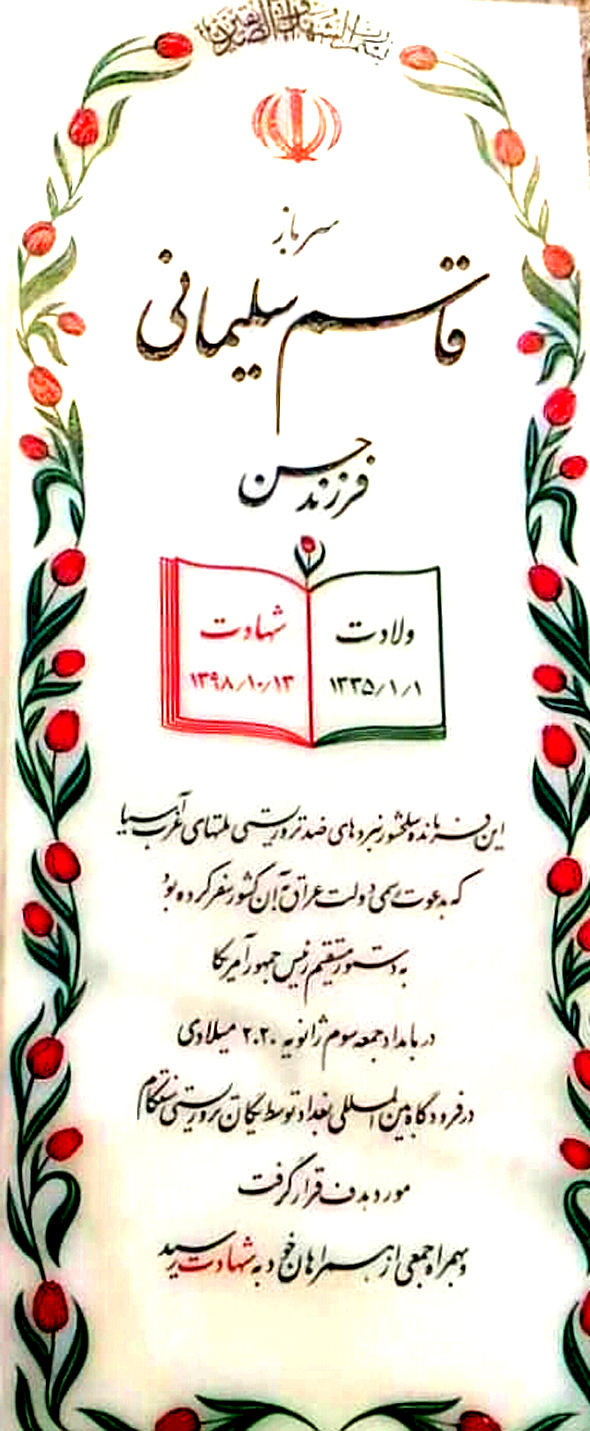 بسم رب الشهداء و الصدیقین
سرباز
قاسم سلیمانی
فرزند حسن
ولادت
۱۳۳۵/۱/۱
شهادت
۱۳۹۸/۱۰/۱۳
این فرمانده سلحشور نیروهای ضد تروریستی ملتهای غرب آسیا
که به دعوت رسمی دولت عراق به آن کشور سفر کرده بود
به دستور مستقیم رئیس جمهور آمریکا
در بامداد جمعه سوم ژانویه ۲۰۲۰ میلادی
در فرودگاه بین المللی بغداد توسط یگان تروریستی سنتکام
مورد هدف قرار گرفت
و بهمراه جمعی از همسرامان خود به شهادت رسید